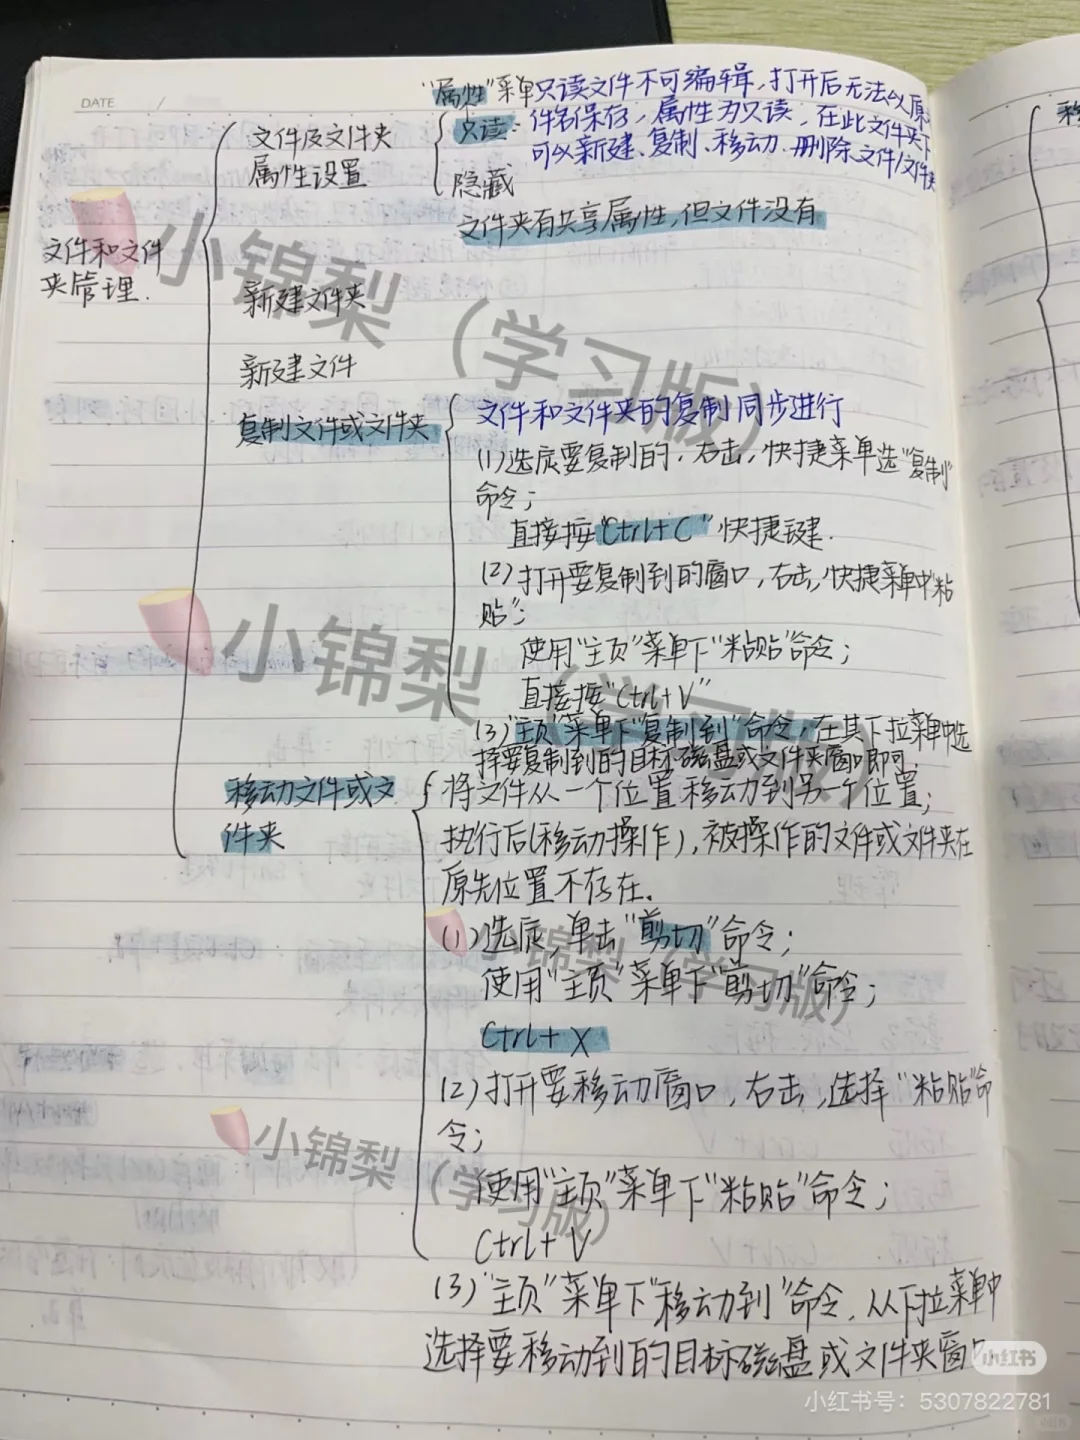 DATE /
"属性"菜单只读文件不可编辑,打开后无法以原
只读:件名保存,属性为只读,在此文件夹下
可以新建、复制、移动、删除文件/文件夹
文件及文件夹
属性设置
隐藏
文件夹有共享属性,但文件没有
文件和文件
夹管理.
新建文件夹
新建文件
复制文件或文件夹
文件和文件夹的复制同步进行
(1)选定要复制的,右击,快捷菜单选"复制"
命令;
直接按"Ctrl+C"快捷键.
(2)打开要复制到的窗口,右击,快捷菜单中"粘
贴";
使用"主页"菜单下"粘贴"命令;
直接按"Ctrl+V"
(3)"主页"菜单下"复制到"命令,在其下拉菜单中选
择要复制到的目标磁盘或文件夹窗口即可.
移动文件或文
件夹
将文件从一个位置移动到另一个位置;
执行后(移动操作),被操作的文件或文件夹在
原先位置不存在.
(1)选定,单击"剪切"命令;
使用"主页"菜单下"剪切"命令;
Ctrl+X
(2)打开要移动窗口,右击,选择"粘贴"命
令;
使用"主页"菜单下"粘贴"命令;
Ctrl+V
(3)"主页"菜单下"移动到"命令,从下拉菜单中
选择要移动到的目标磁盘或文件夹窗口
小锦梨(学习版)
小锦梨(学习版)
小锦梨(学习版)
小锦梨(学习版)
小红书
小红书号:5307822781